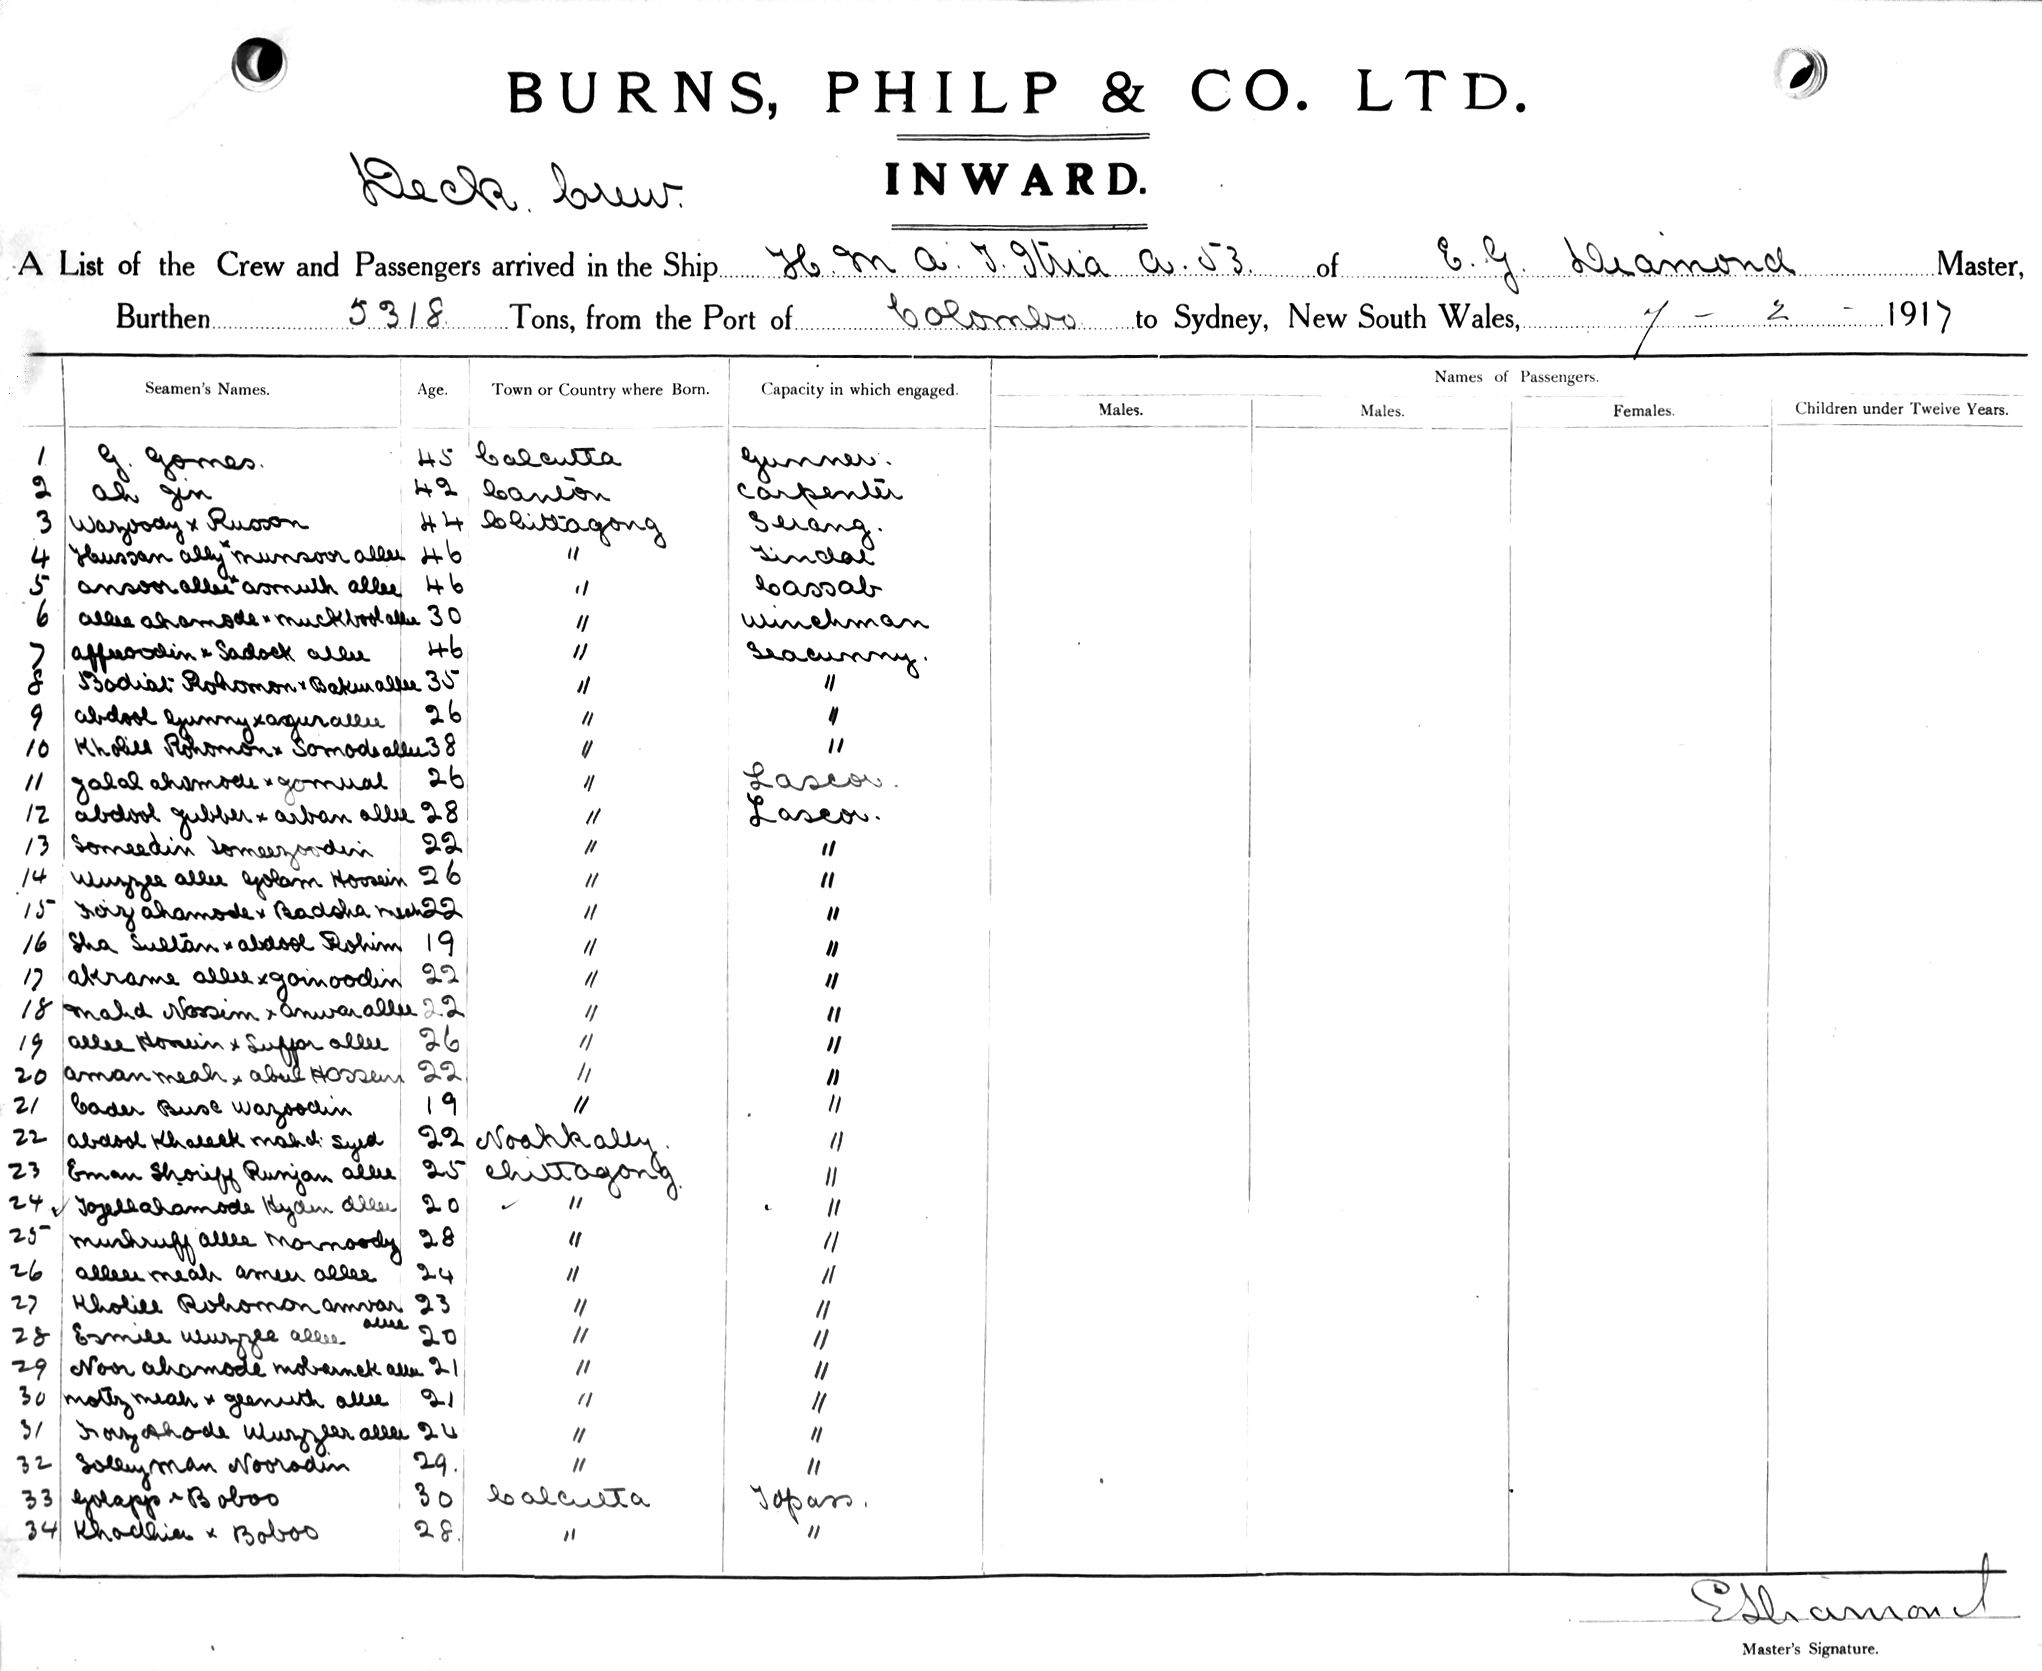 BURNS, PHILP & CO. LTD.
INWARD.
Deck. Crew.
A List of the Crew and Passengers arrived in the Ship H. M A. T. Itria A. 53. of E. G. Diamond Master,
Burthen 5318 Tons, from the Port of Colombo to Sydney, New South Wales, 7 - 2 - 1917
Seamen's Names. Age. Town or Country where Born. Capacity in which engaged. Names of Passengers.
Males. Males. Females. Children under Twelve Years.
1 G. Gomes. 45 Calcutta Gunner.
2 Ah Jin 42 Canton Carpenter
3 Wazoody x Russon 44 Chittagong Serang.
4 Hussan ally x munsoor allee 46 " Tindal
5 ansoor allee x asmuth allee 46 " Cassab
6 allee ahamode x muckbool allee 30 " Winchman
7 x Sadock allee 46 " Seacunny.
8 Bodiat Rohomon x Bakur allee 35 " "
9 abdool Gunny x agur allee 26 " "
10 Kholill Rohomon x Somode allee 38 " "
11 Jalal ahamode x 26 " Lascar.
12 abdool Jubber x arban allee 28 " Lascar.
13 Someedin Tomeezoodin 22 " "
14 Wuzzee allee Golam Hossein 26 " "
15 Foiz ahamode x Badsha meah 22 " "
16 Sha Sultan x abdool Rohim 19 " "
17 akrame allee x Joinoodin 22 " "
18 mahd Nossim x anwar allee 22 " "
19 allee Hossein x Suffar allee 26 " "
20 aman meah x abul Hossein 22 " "
21 Cader Busc Wazoodin 19 " "
22 abdool Khaleck mahd Syed 22 Noahkally. "
23 Eman Shoriff Runjan allee 25 Chittagong. "
24 Hyden allee 20 " "
25 mushruff allee mamoody 28 " "
26 allee meah ameer allee 24 " "
27 Kholill Rohomon anwar allee 23 " "
28 Esmile Wuzzee allee 20 " "
29 Noor ahamode moбaruck allee 21 " "
30 meah x allee 21 " "
31 Foiz Ahode Wuzzeer allee 24 " "
32 Solleyman Noorodin 29. " "
33 Golapp x Boboo 30 Calcutta Topass.
34 x Boboo 28. " "
E G Diamond
Master's Signature.